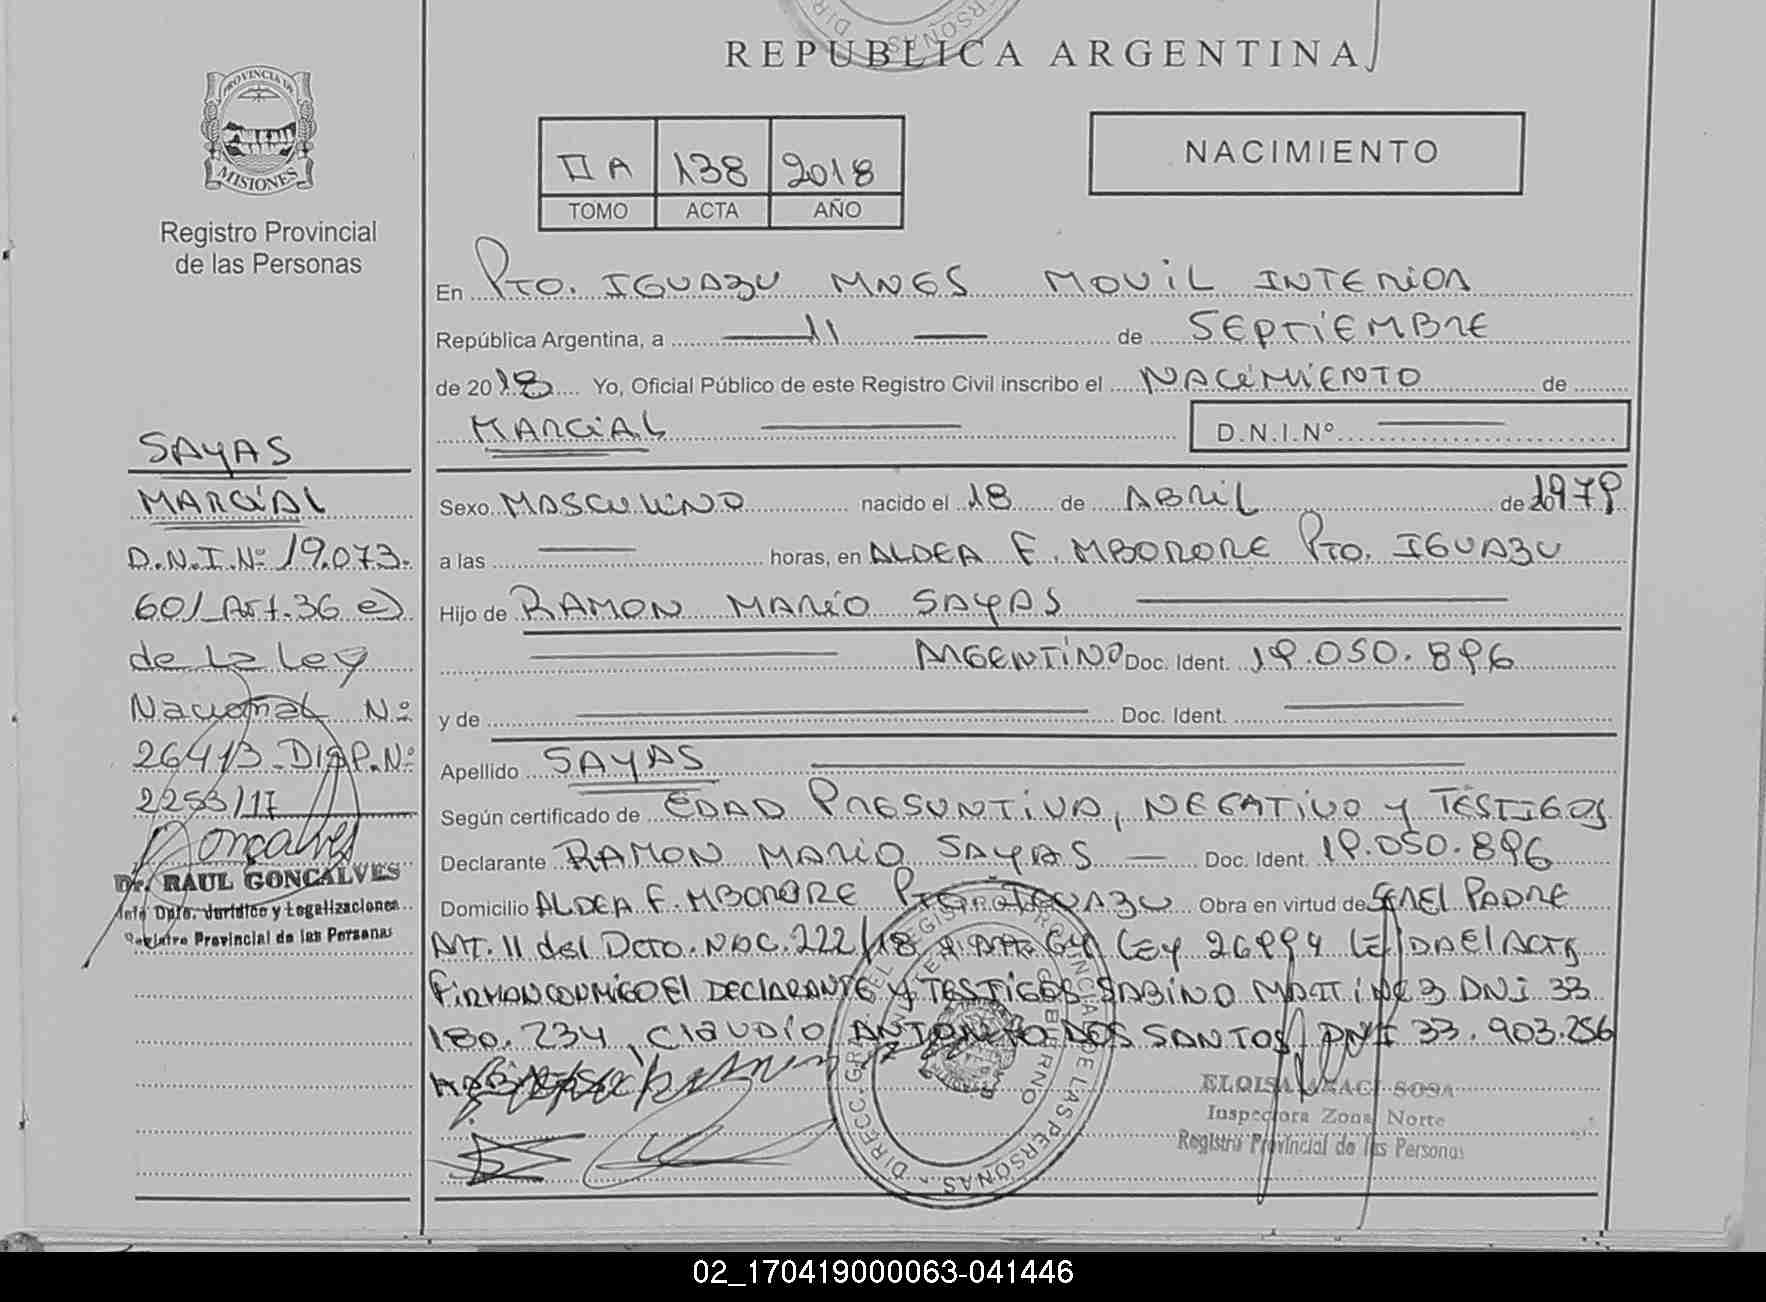 REPUBLICA ARGENTINA
PROVINCIA DE
MISIONES
Registro Provincial
de las Personas
II A 138 2018
TOMO ACTA AÑO
NACIMIENTO
En Pto. IGUAZU MNES MOVIL INTERIOR
República Argentina, a 11 de SEPTIEMBRE
de 2018 Yo, Oficial Público de este Registro Civil inscribo el NACIMIENTO de
MARCIAL D.N.I.Nº
Sexo MASCULINO nacido el 18 de ABRIL de 1979
a las horas, en ALDEA F. MBORORE Pto. IGUAZU
Hijo de RAMON MARIO SAYAS
ARGENTINO Doc. Ident. 19.050.896
y de Doc. Ident.
Apellido SAYAS
Según certificado de EDAD PRESUNTIVA, NEGATIVO y TESTIGOS
Declarante RAMON MARIO SAYAS Doc. Ident. 19.050.896
Domicilio ALDEA F. MBORORE Pto. IGUAZU Obra en virtud de SER EL PADRE
ART. 11 del Dcto. NAC. 222/18 Ley 26994 LEIDA El ACTA
FIRMAN CONMIGO El DECLARANTE y TESTIGOS SABINO MARTINEZ DNI 33
180.234, CLAUDIO ANTONIO DOS SANTOS DNI 33.903.256
ELOISA SOSA
Inspectora Zona Norte
Registro Provincial de las Personas
SAYAS
MARCIAL
D.N.I.Nº 19.073.
601 Art. 36 e)
de La Ley
Nacional Nº
26413 DISP.Nº
2253/17
Goncalves
Dr. RAUL GONCALVES
Jefe Dpto. Jurídico y Legalizaciones
Registro Provincial de las Personas
02_170419000063-041446